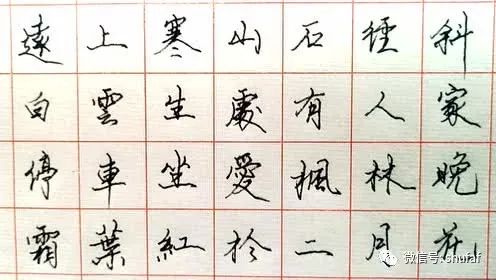 遠上寒山石徑斜
白雲生處有人家
停車坐愛楓林晚
霜葉紅於二月花
微信号: shufaf